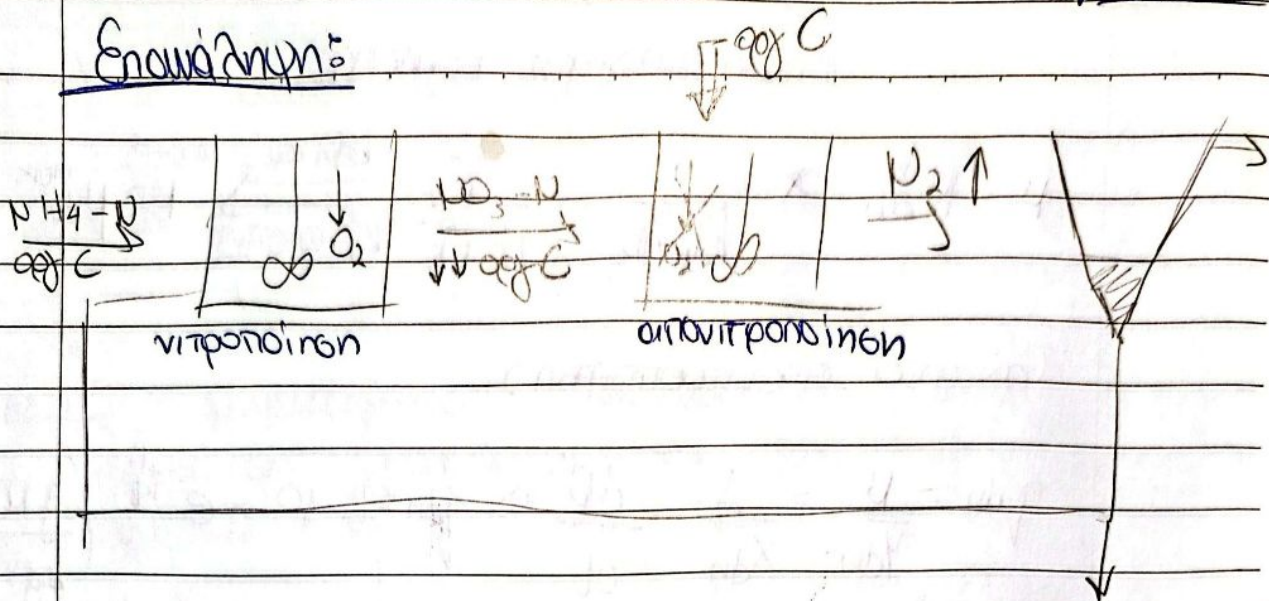 Επανάληψη:
οργ C
NH4-N
οργ C
O2
NO3-N
↓↓ οργ C
O2
N2 ↑
νιτροποίηση
απονιτροποίηση